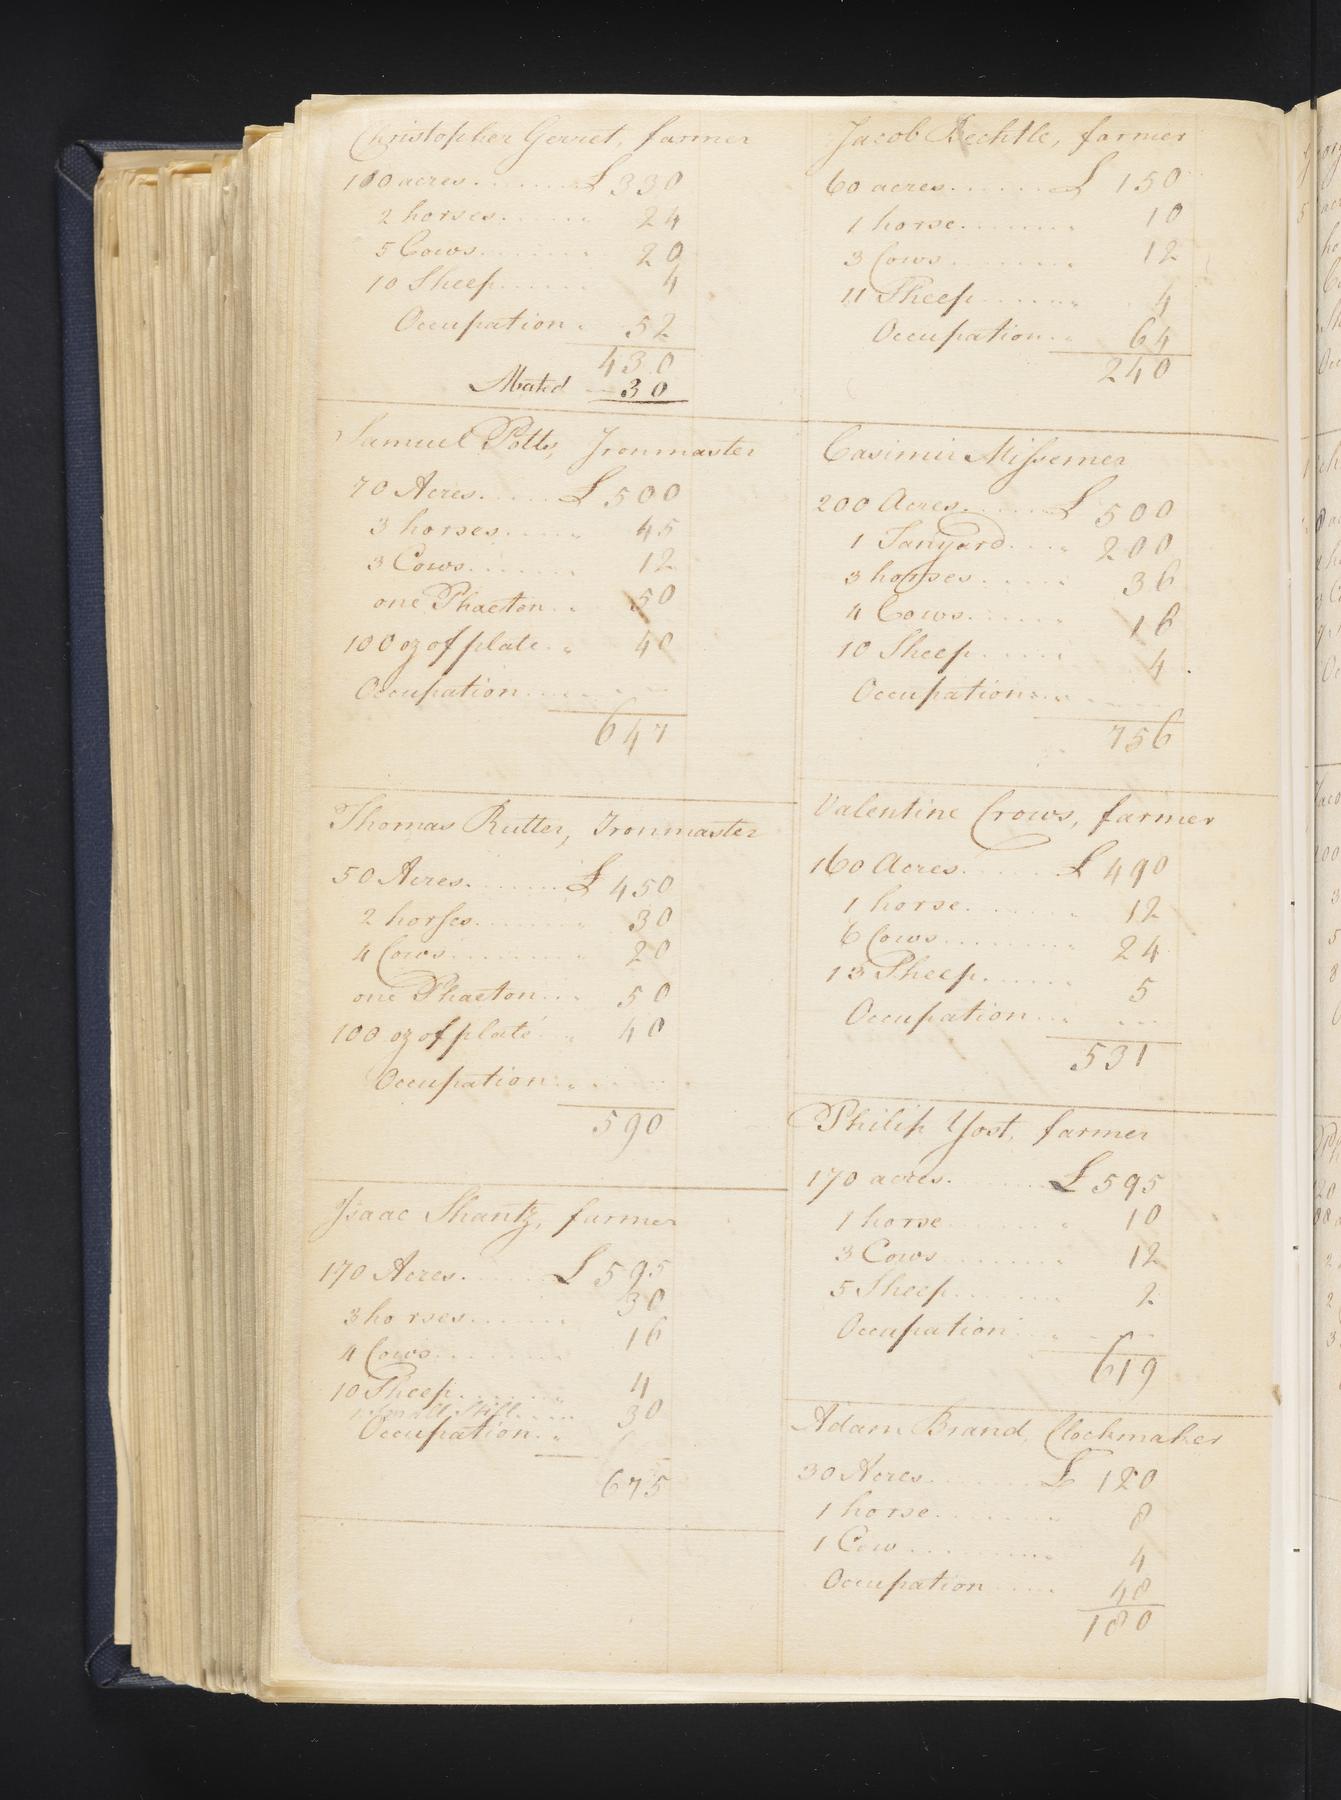 Christopher Gerret, farmer
100 acres........£ 330
2 horses....... 24
5 Cows........ 20
10 Sheep...... 4
Occupation.. 52
430
Abated 30
Samuel Potts, Ironmaster
70 Acres......£ 500
3 horses...... 45
3 Cows....... 12
one Phaeton.. 50
100 oz of plate.. 40
Occupation.......
647
Thomas Rutter, Ironmaster
50 Acres........£ 450
2 horses....... 30
4 Cows........ 20
one Phaeton... 50
100 oz of plate.. 40
Occupation.......
590
Isaac Shantz, farmer
170 Acres......£ 595
3 horses...... 30
4 Cows........ 16
10 Sheep...... 4
1 Small Still..... 30
Occupation..
675
Jacob Bechtle, farmer
60 acres.......£ 150
1 horse........ 10
3 Cows........ 12
11 Sheep...... 4
Occupation... 64
240
Casimir Missemer
200 Acres......£ 500
1 Tanyard.... 200
3 horses..... 36
4 Cows...... 16
10 Sheep..... 4
Occupation.......
756
Valentine Crows, farmer
160 Acres......£ 490
1 horse....... 12
6 Cows........ 24
13 Sheep...... 5
Occupation.......
531
Philip Yost, farmer
170 acres.......£ 595
1 horse....... 10
3 Cows....... 12
5 Sheep...... 2
Occupation.......
619
Adam Brand, Clockmaker
30 Acres.......£ 120
1 horse....... 8
1 Cow......... 4
Occupation.... 48
180